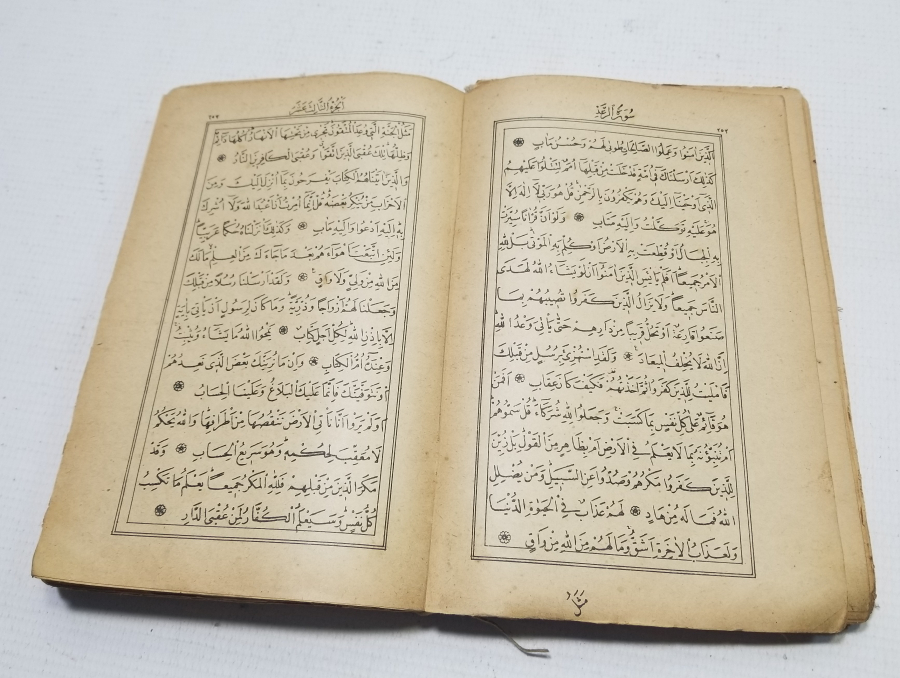 سُورَةُ الرَّعْدِ
٢٥٢
اَلَّذِينَ اٰمَنُوا وَعَمِلُوا الصَّالِحَاتِ طُوبٰى لَهُمْ وَحُسْنُ مَاٰبٍ
كَذٰلِكَ اَرْسَلْنَاكَ فِٓى اُمَّةٍ قَدْ خَلَتْ مِنْ قَبْلِهَٓا اُمَمٌ لِتَتْلُوَا عَلَيْهِمُ
الَّذِٓى اَوْحَيْنَٓا اِلَيْكَ وَهُمْ يَكْفُرُونَ بِالرَّحْمٰنِ قُلْ هُوَ رَبِّى لَٓا اِلٰهَ اِلَّا
هُوَ عَلَيْهِ تَوَكَّلْتُ وَاِلَيْهِ مَتَابِ وَلَوْ اَنَّ قُرْاٰنًا سُيِّرَتْ
بِهِ الْجِبَالُ اَوْ قُطِّعَتْ بِهِ الْاَرْضُ اَوْ كُلِّمَ بِهِ الْمَوْتٰى بَلْ لِلّٰهِ
الْاَمْرُ جَمِيعًا اَفَلَمْ يَايْـَٔسِ الَّذِينَ اٰمَنُٓوا اَنْ لَوْ يَشَٓاءُ اللّٰهُ لَهَدَى
النَّاسَ جَمِيعًا وَلَا يَزَالُ الَّذِينَ كَفَرُوا تُصِيبُهُمْ بِمَا
صَنَعُوا قَارِعَةٌ اَوْ تَحُلُّ قَرِيبًا مِنْ دَارِهِمْ حَتّٰى يَاْتِىَ وَعْدُ اللّٰهِ
اِنَّ اللّٰهَ لَا يُخْلِفُ الْمِيعَادَ وَلَقَدِ اسْتُهْزِئَ بِرُسُلٍ مِنْ قَبْلِكَ
فَاَمْلَيْتُ لِلَّذِينَ كَفَرُوا ثُمَّ اَخَذْتُهُمْ فَكَيْفَ كَانَ عِقَابِ اَفَمَنْ
هُوَ قَٓائِمٌ عَلٰى كُلِّ نَفْسٍ بِمَا كَسَبَتْ وَجَعَلُوا لِلّٰهِ شُرَكَٓاءَ قُلْ سَمُّوهُمْ
اَمْ تُنَبِّؤُنَهُ بِمَا لَا يَعْلَمُ فِى الْاَرْضِ اَمْ بِظَاهِرٍ مِنَ الْقَوْلِ بَلْ زُيِّنَ
لِلَّذِينَ كَفَرُوا مَكْرُهُمْ وَصُدُّوا عَنِ السَّبِيلِ وَمَنْ يُضْلِلِ
اللّٰهُ فَمَا لَهُ مِنْ هَادٍ لَهُمْ عَذَابٌ فِى الْحَيٰوةِ الدُّنْيَا
وَلَعَذَابُ الْاٰخِرَةِ اَشَقُّ وَمَا لَهُمْ مِنَ اللّٰهِ مِنْ وَاقٍ
مَثَلُ
اَلْجُزْءُ الثَّالِثَ عَشَرَ
٢٥٣
مَثَلُ الْجَنَّةِ الَّتِى وُعِدَ الْمُتَّقُونَ تَجْرِى مِنْ تَحْتِهَا الْاَنْهَارُ اُكُلُهَا دَٓائِمٌ
وَظِلُّهَا تِلْكَ عُقْبَى الَّذِينَ اتَّقَوْا وَعُقْبَى الْكَافِرِينَ النَّارُ
وَالَّذِينَ اٰتَيْنَاهُمُ الْكِتَابَ يَفْرَحُونَ بِمَٓا اُنْزِلَ اِلَيْكَ وَمِنَ
الْاَحْزَابِ مَنْ يُنْكِرُ بَعْضَهُ قُلْ اِنَّمَٓا اُمِرْتُ اَنْ اَعْبُدَ اللّٰهَ وَلَٓا اُشْرِكَ
بِهِ اِلَيْهِ اَدْعُوا وَاِلَيْهِ مَاٰبِ وَكَذٰلِكَ اَنْزَلْنَاهُ حُكْمًا عَرَبِيًّا
وَلَئِنِ اتَّبَعْتَ اَهْوَٓاءَهُمْ بَعْدَ مَا جَٓاءَكَ مِنَ الْعِلْمِ مَا لَكَ
مِنَ اللّٰهِ مِنْ وَلِىٍّ وَلَا وَاقٍ وَلَقَدْ اَرْسَلْنَا رُسُلًا مِنْ قَبْلِكَ
وَجَعَلْنَا لَهُمْ اَزْوَاجًا وَذُرِّيَّةً وَمَا كَانَ لِرَسُولٍ اَنْ يَاْتِىَ بِاٰيَةٍ
اِلَّا بِاِذْنِ اللّٰهِ لِكُلِّ اَجَلٍ كِتَابٌ يَمْحُوا اللّٰهُ مَا يَشَٓاءُ وَيُثْبِتُ
وَعِنْدَهُٓ اُمُّ الْكِتَابِ وَاِنْ مَا نُرِيَنَّكَ بَعْضَ الَّذِى نَعِدُهُمْ
اَوْ نَتَوَفَّيَنَّكَ فَاِنَّمَا عَلَيْكَ الْبَلَاغُ وَعَلَيْنَا الْحِسَابُ
اَوَلَمْ يَرَوْا اَنَّا نَاْتِى الْاَرْضَ نَنْقُصُهَا مِنْ اَطْرَافِهَا وَاللّٰهُ يَحْكُمُ
لَا مُعَقِّبَ لِحُكْمِهِ وَهُوَ سَرِيعُ الْحِسَابِ وَقَدْ
مَكَرَ الَّذِينَ مِنْ قَبْلِهِمْ فَلِلّٰهِ الْمَكْرُ جَمِيعًا يَعْلَمُ مَا تَكْسِبُ
كُلُّ نَفْسٍ وَسَيَعْلَمُ الْكُفَّارُ لِمَنْ عُقْبَى الدَّارِ